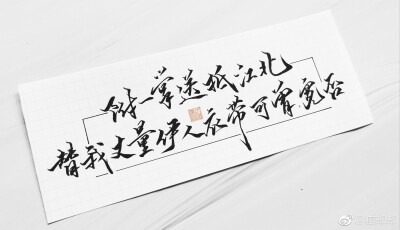 一掌送抵江北
替我丈量伊人衣带可曾宽否